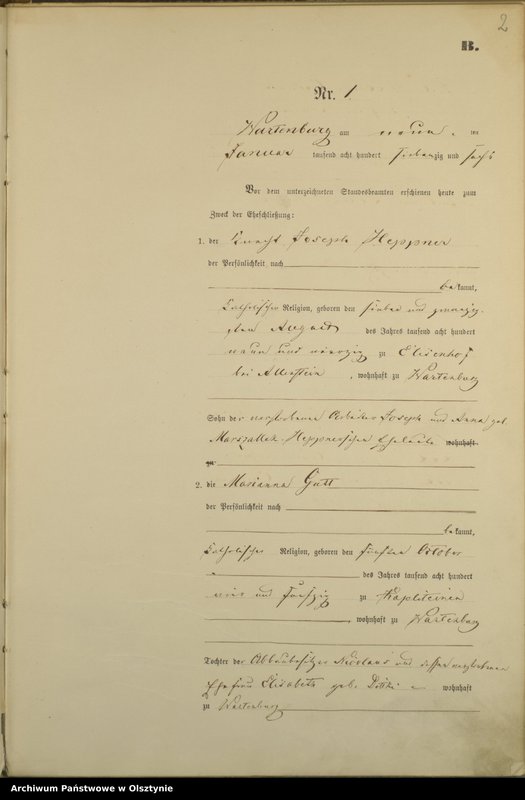 2
B.
Nr. 1
Wartenburg am neun ten
Januar tausend acht hundert siebenzig und sechs
Vor dem unterzeichneten Standesbeamten erschienen heute zum
Zweck der Eheschließung:
1. der Knecht Joseph Heppner
der Persönlichkeit nach
bekannt,
katholischer Religion, geboren den sieben und zwanzig-
sten August des Jahres tausend acht hundert
neun und vierzig zu Elisenhof
bei Allenstein, wohnhaft zu Wartenburg
Sohn der verstorbenen Arbeiter Joseph und Anna geb.
Heppnerschen Eheleute wohnhaft
zu
2. die Marianna Gutt
der Persönlichkeit nach
bekannt,
katholischer Religion, geboren den fünften October
des Jahres tausend acht hundert
vier und fünfzig zu
, wohnhaft zu Wartenburg
Tochter der Abbaubesitzer Nicolaus und dessen verstorbenen
Ehefrau Elisabeth geb. wohnhaft
zu Wartenburg
Archiwum Państwowe w Olsztynie